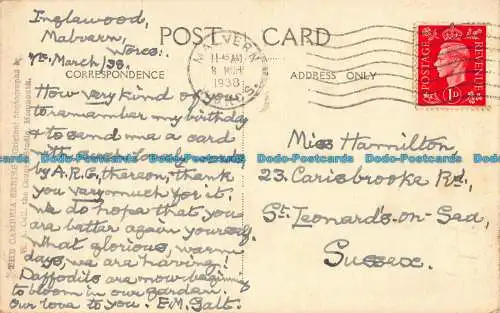 Inglewood,
Malvern,
Worcs.
7th. March/38.
POST CARD
CORRESPONDENCE
ADDRESS ONLY
MALVERN
11-45 AM
8 MCH
1938
WORCS.
POSTAGE
REVENUE
1D
How very kind of you
to remember my birthday
& to send me a card
with
by A.R.G. thereon, thank
you very much for it.
We do hope that you
are better again yourself.
What glorious, warm
days, we are having!
Daffodils are now beginning
to bloom in our garden.
Our love to you. E.M. Galt.
Miss Hamilton,
23, Carisbrooke Rd.,
St. Leonard's-on-Sea,
Sussex.
THE CAMBRIA SERIES
Dodo-Postcards Dodo-Postcards Dodo-Postcards Dodo-Postcards Dodo-Postcards